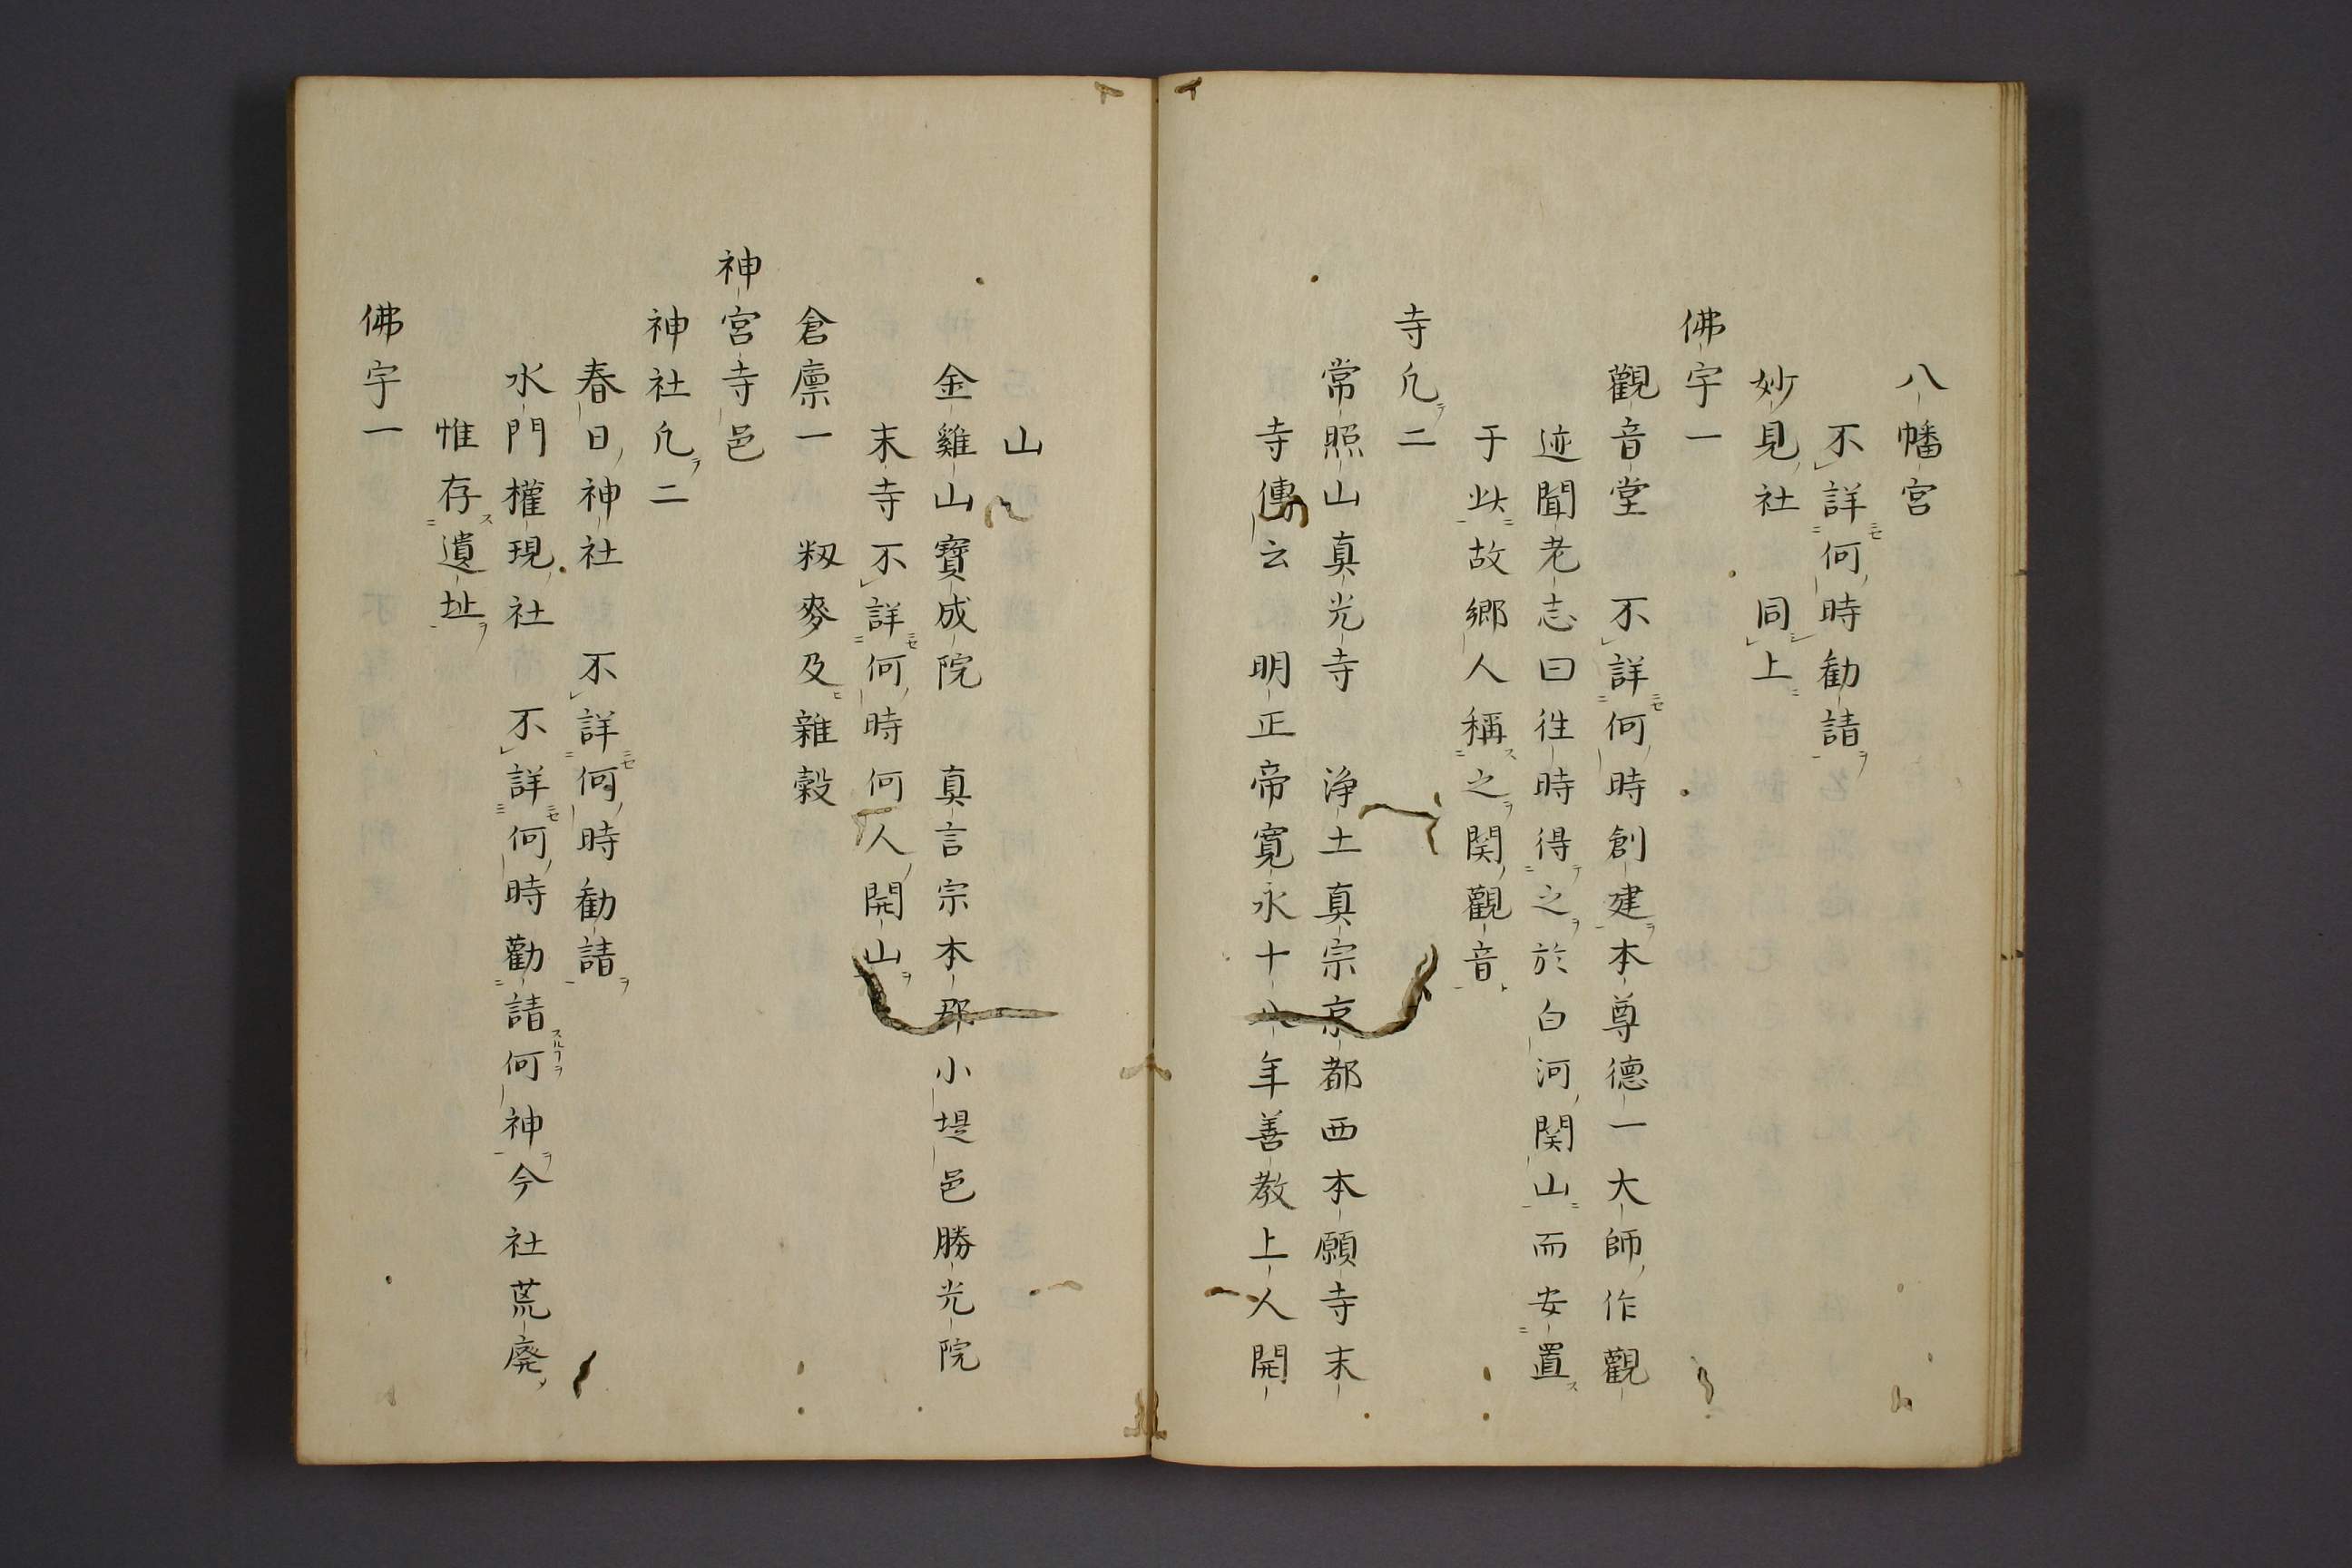 八幡宮
不詳何時勧請
妙見社 同上
佛宇一
觀音堂 不詳何時創建本尊德一大師作觀
迹聞老志曰徃時得之於白河関山而安置
于此故郷人稱之関觀音
寺凢二
常照山真光寺 浄土真宗京都西本願寺末
寺傳云 明正帝寛永十八年善教上人開
山
金雞山寶成院 真言宗本郡小堤邑勝光院
末寺不詳何時何人開山
倉廪一 籾麥及雜穀
神宮寺邑
神社凢二
春日神社 不詳何時勧請
水門權現社 不詳何時勸請何神今社荒廃
惟存遺址
佛宇一